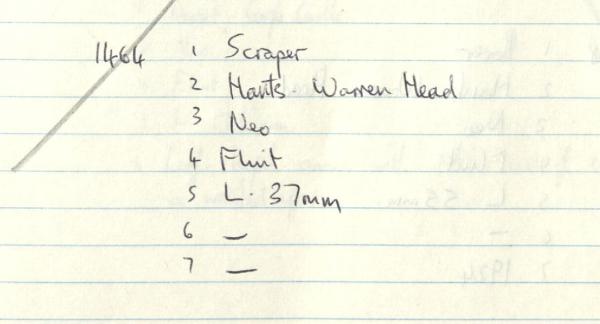 1464 1 Scraper
2 Hants. Warren Head
3 Neo
4 Flint
5 L. 37mm
6 —
7 —